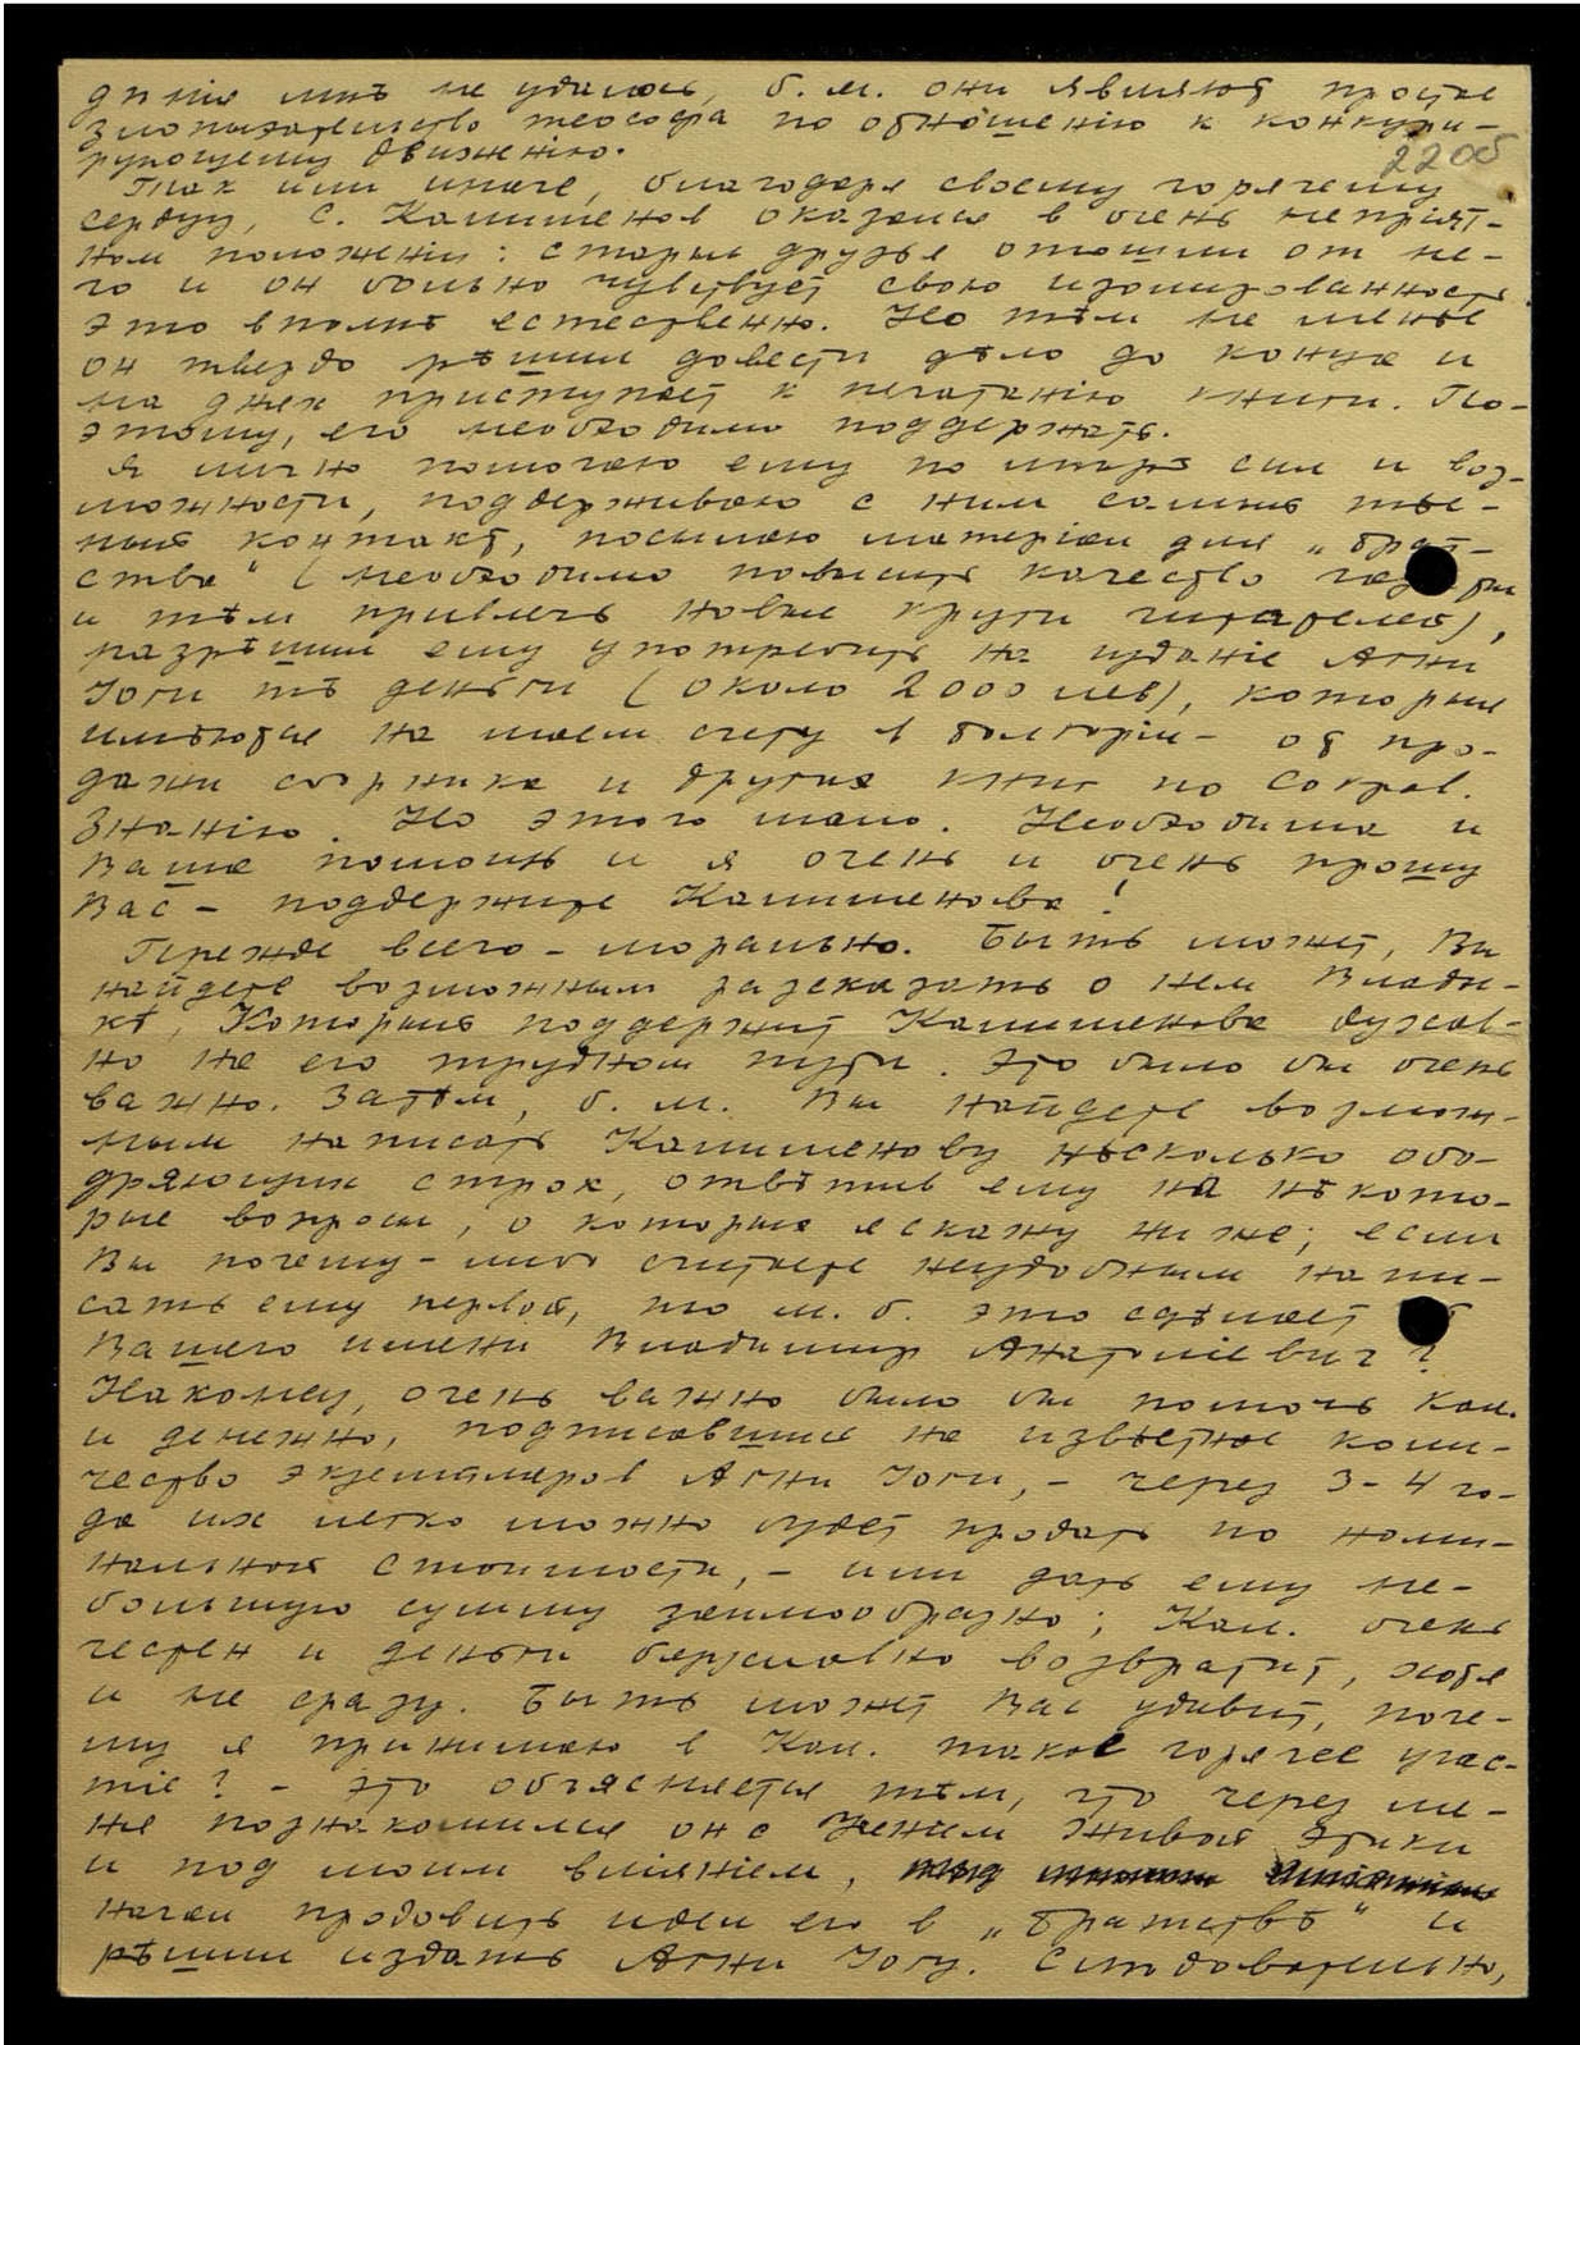 дѣнія мнѣ не удалось, б. м. они являют простое
злопыхательство теософа по отношенію к конкури-
рующему движенію.
22об
Так или иначе, благодаря своему горячему
сердцу, С. Калишенов оказался в очень непріят-
ном положеніи: старые друзья отошли от не-
го и он больно чувствует свою изолированность.
Это вполнѣ естественно. Но тѣм не менѣе
он твердо рѣшил довести дѣло до конца и
на днях приступает к печатанію книги. По-
этому, его необходимо поддержать.
Я лично помогаю ему по мѣрѣ сил и воз-
можности, поддерживаю с ним самый тѣс-
ный контакт, посылаю матеріал для „Брат-
ства" (необходимо повысить качество газеты
и тѣм привлечь новые круги читателей),
разрѣшил ему употребить на изданіе Агни
Іоги тѣ деньги (около 2000 лев), которые
имѣются на моем счету в Болгаріи – от про-
дажи сборника и других книг по Сокров.
Знанію. Но этого мало. Необходима и
Ваша помощь и я очень и очень прошу
Вас – поддержите Калишенова!
Прежде всего – морально. Быть может, Вы
найдете возможным разсказать о нем Влады-
кѣ, Который поддержит Калишенова духов-
но на его трудном пути. Это было бы очень
важно. Затѣм, б. м. Вы найдете возмож-
ным написать Калишенову нѣсколько обо-
дряющих строк, отвѣтив ему на нѣкото-
рые вопросы, о которых я скажу ниже; если
Вы почему-либо считаете неудобным напи-
сать ему первой, то м. б. это сдѣлает от
Вашего имени Владимир Анатоліевич?
Наконец, очень важно было бы помочь Кал.
и денежно, подписавшись на извѣстное коли-
чество экземпляров Агни Іоги, – через 3-4 го-
да их легко можно будет продать по номи-
нальной стоимости, – или дать ему не-
большую сумму заимообразно; Кал. очень
честен и деньги безусловно возвратит, хотя
и не сразу. Быть может Вас удивит, поче-
му я принимаю в Кал. такое горячее учас-
тіе? – Это объясняется тѣм, что через ме-
ня познакомился он с Ученіем Живой Этики
и под моим вліяніем,
начал проводить идеи его в „Братствѣ" и
рѣшил издать Агни Іогу. Слѣдовательно,